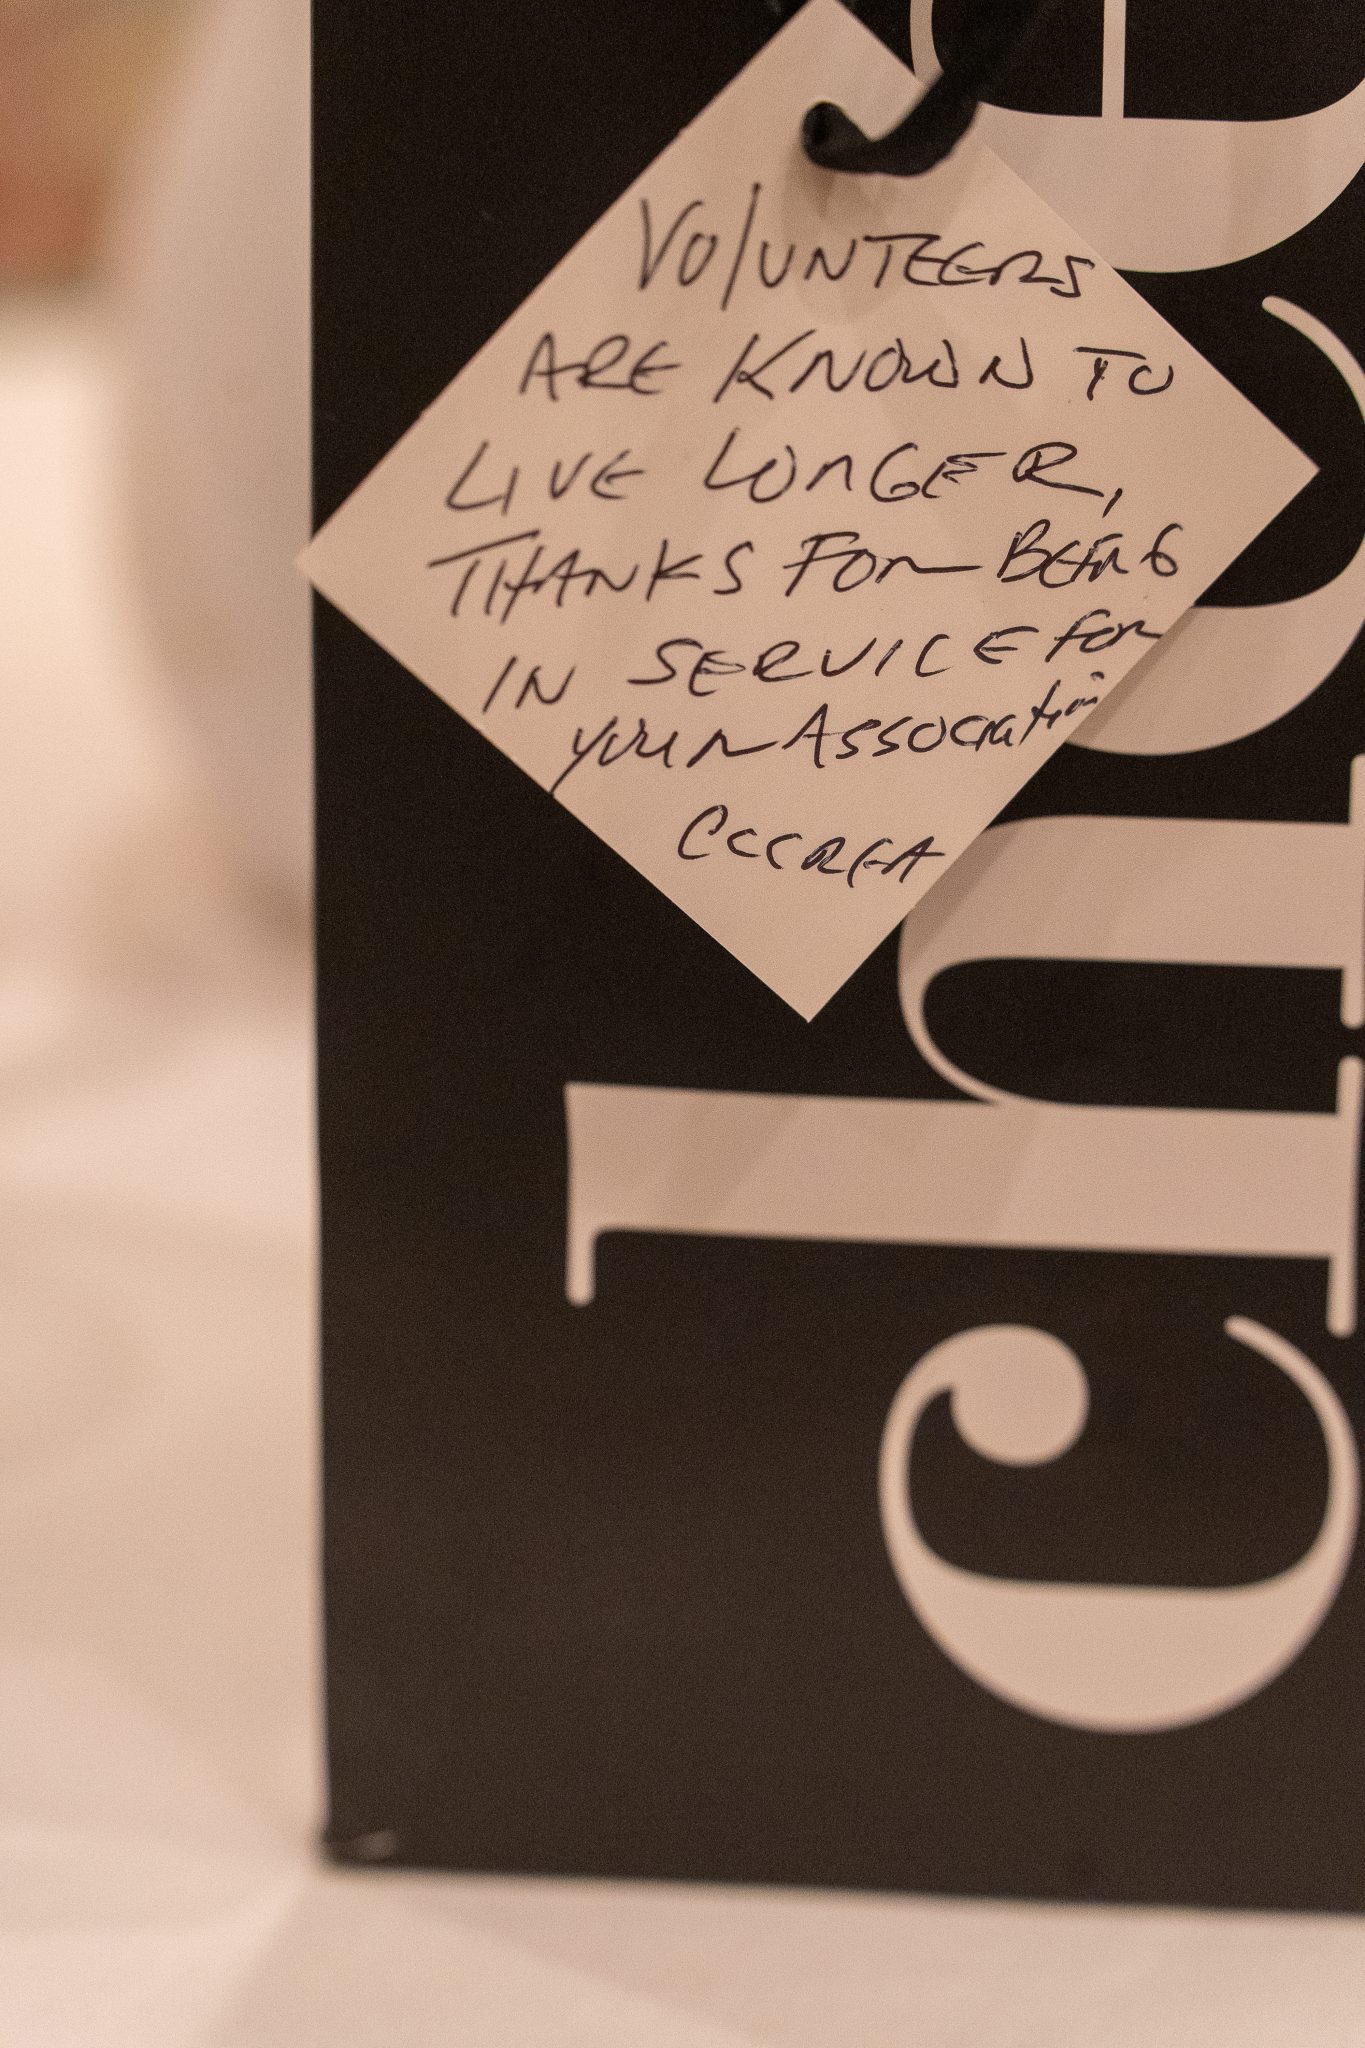 VOLUNTEERS
ARE KNOWN TO
LIVE LONGER,
THANKS FOR BEING
IN SERVICE FOR
YOUR ASSOCIATION
CCCREA